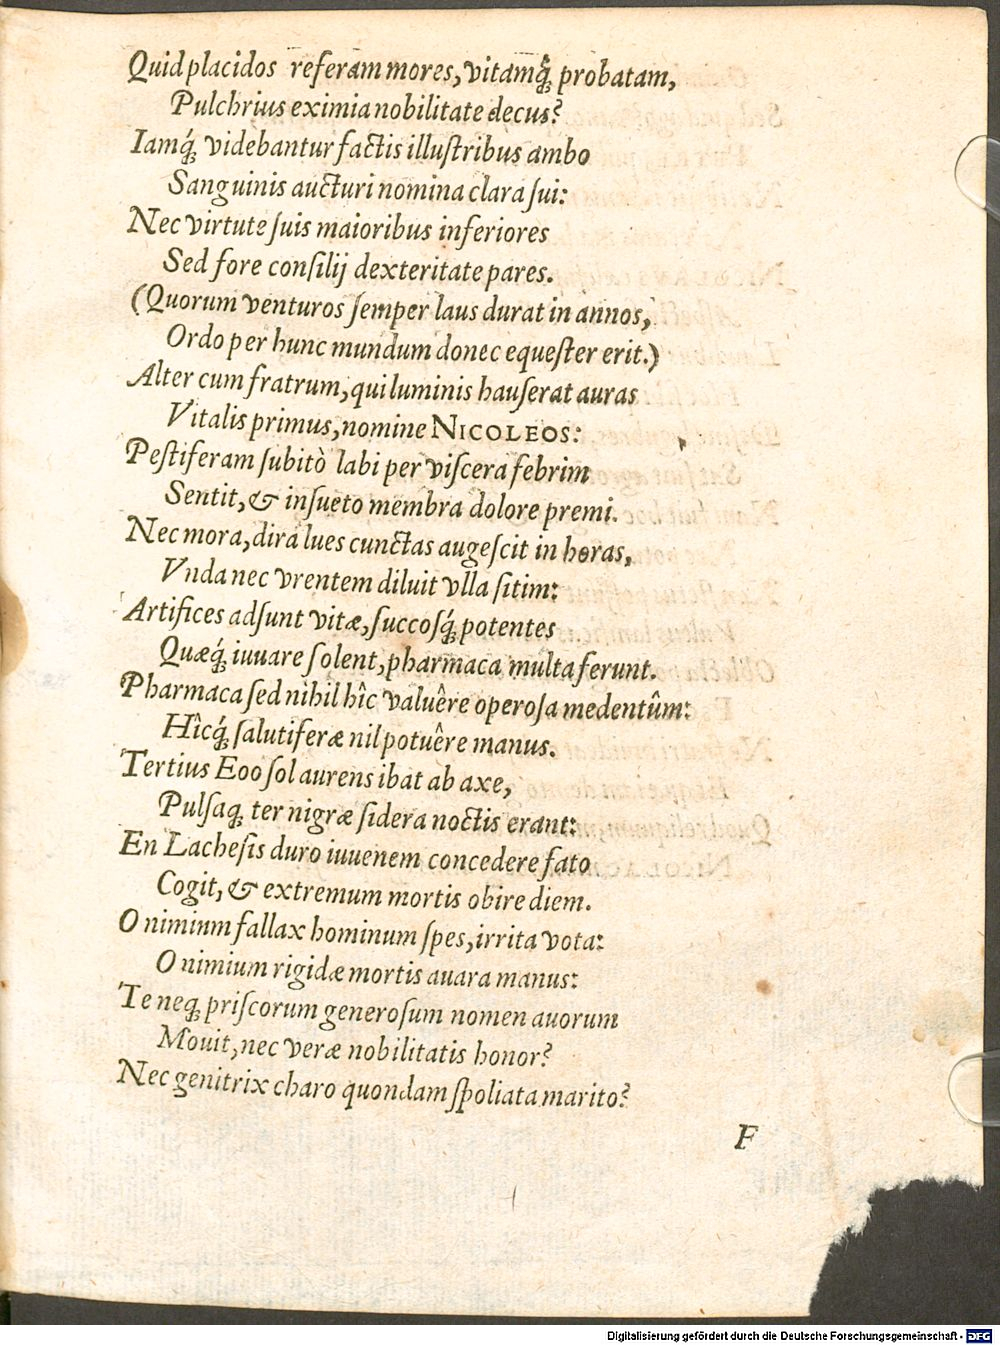 Quid placidos referam mores, vitamq́; probatam,
Pulchrius eximia nobilitate decus?
Iamq́; videbantur factis illuſtribus ambo
Sanguinis aucturi nomina clara ſui:
Nec virtute ſuis maioribus inferiores
Sed fore conſilij dexteritate pares.
(Quorum venturos ſemper laus durat in annos,
Ordo per hunc mundum donec equeſter erit.)
Alter cum fratrum, qui luminis hauſerat auras
Vitalis primus, nomine NICOLEOS:
Peſtiferam ſubitò labi per viſcera febrim
Sentit, & inſueto membra dolore premi.
Nec mora, dira lues cunctas augeſcit in horas,
Vnda nec vrentem diluit vlla ſitim:
Artifices adſunt vitæ, ſuccosq́; potentes
Quæq́; iuuare ſolent, pharmaca multa ferunt.
Pharmaca ſed nihil hîc valuêre operoſa medentûm:
Hîcq́; ſalutiferæ nil potuêre manus.
Tertius Eoo ſol aurens ibat ab axe,
Pulſaq; ter nigræ ſidera noctis erant:
En Lacheſis duro iuuenem concedere fato
Cogit, & extremum mortis obire diem.
O nimium fallax hominum ſpes, irrita vota:
O nimium rigidæ mortis auara manus:
Te neq; priſcorum generoſum nomen auorum
Mouit, nec veræ nobilitatis honor?
Nec genitrix charo quondam ſpoliata marito?
F
Digitalisierung gefördert durch die Deutsche Forschungsgemeinschaft - DFG